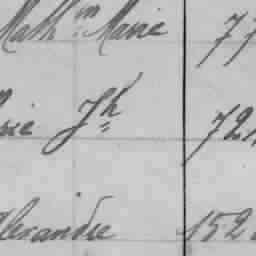 Math.in Marie 77
rie Jh 721
lexandre 152